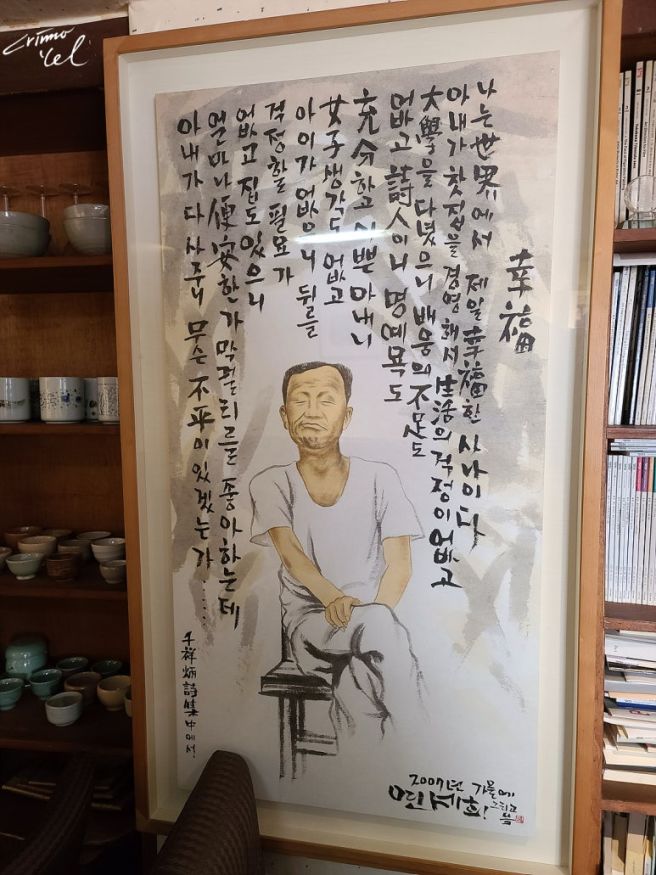 幸福
나는 世界에서 제일 幸福한 사나이다
아내가 찻집을 경영해서 生活의 걱정이 없고
大學을 다녔으니 배움의 不足도
없고 詩人이니 명예욕도
充分하고 이쁜 아내니
女子생각도 없고
아이가 없으니 뒤를
걱정할 필요가
없고 집도 있으니
얼마나 便安한가 막걸리를 좋아하는데
아내가 다 사주니 무슨 不平이 있겠는가.....
千祥炳詩集中에서.
2007년 가을에
그리고
씀